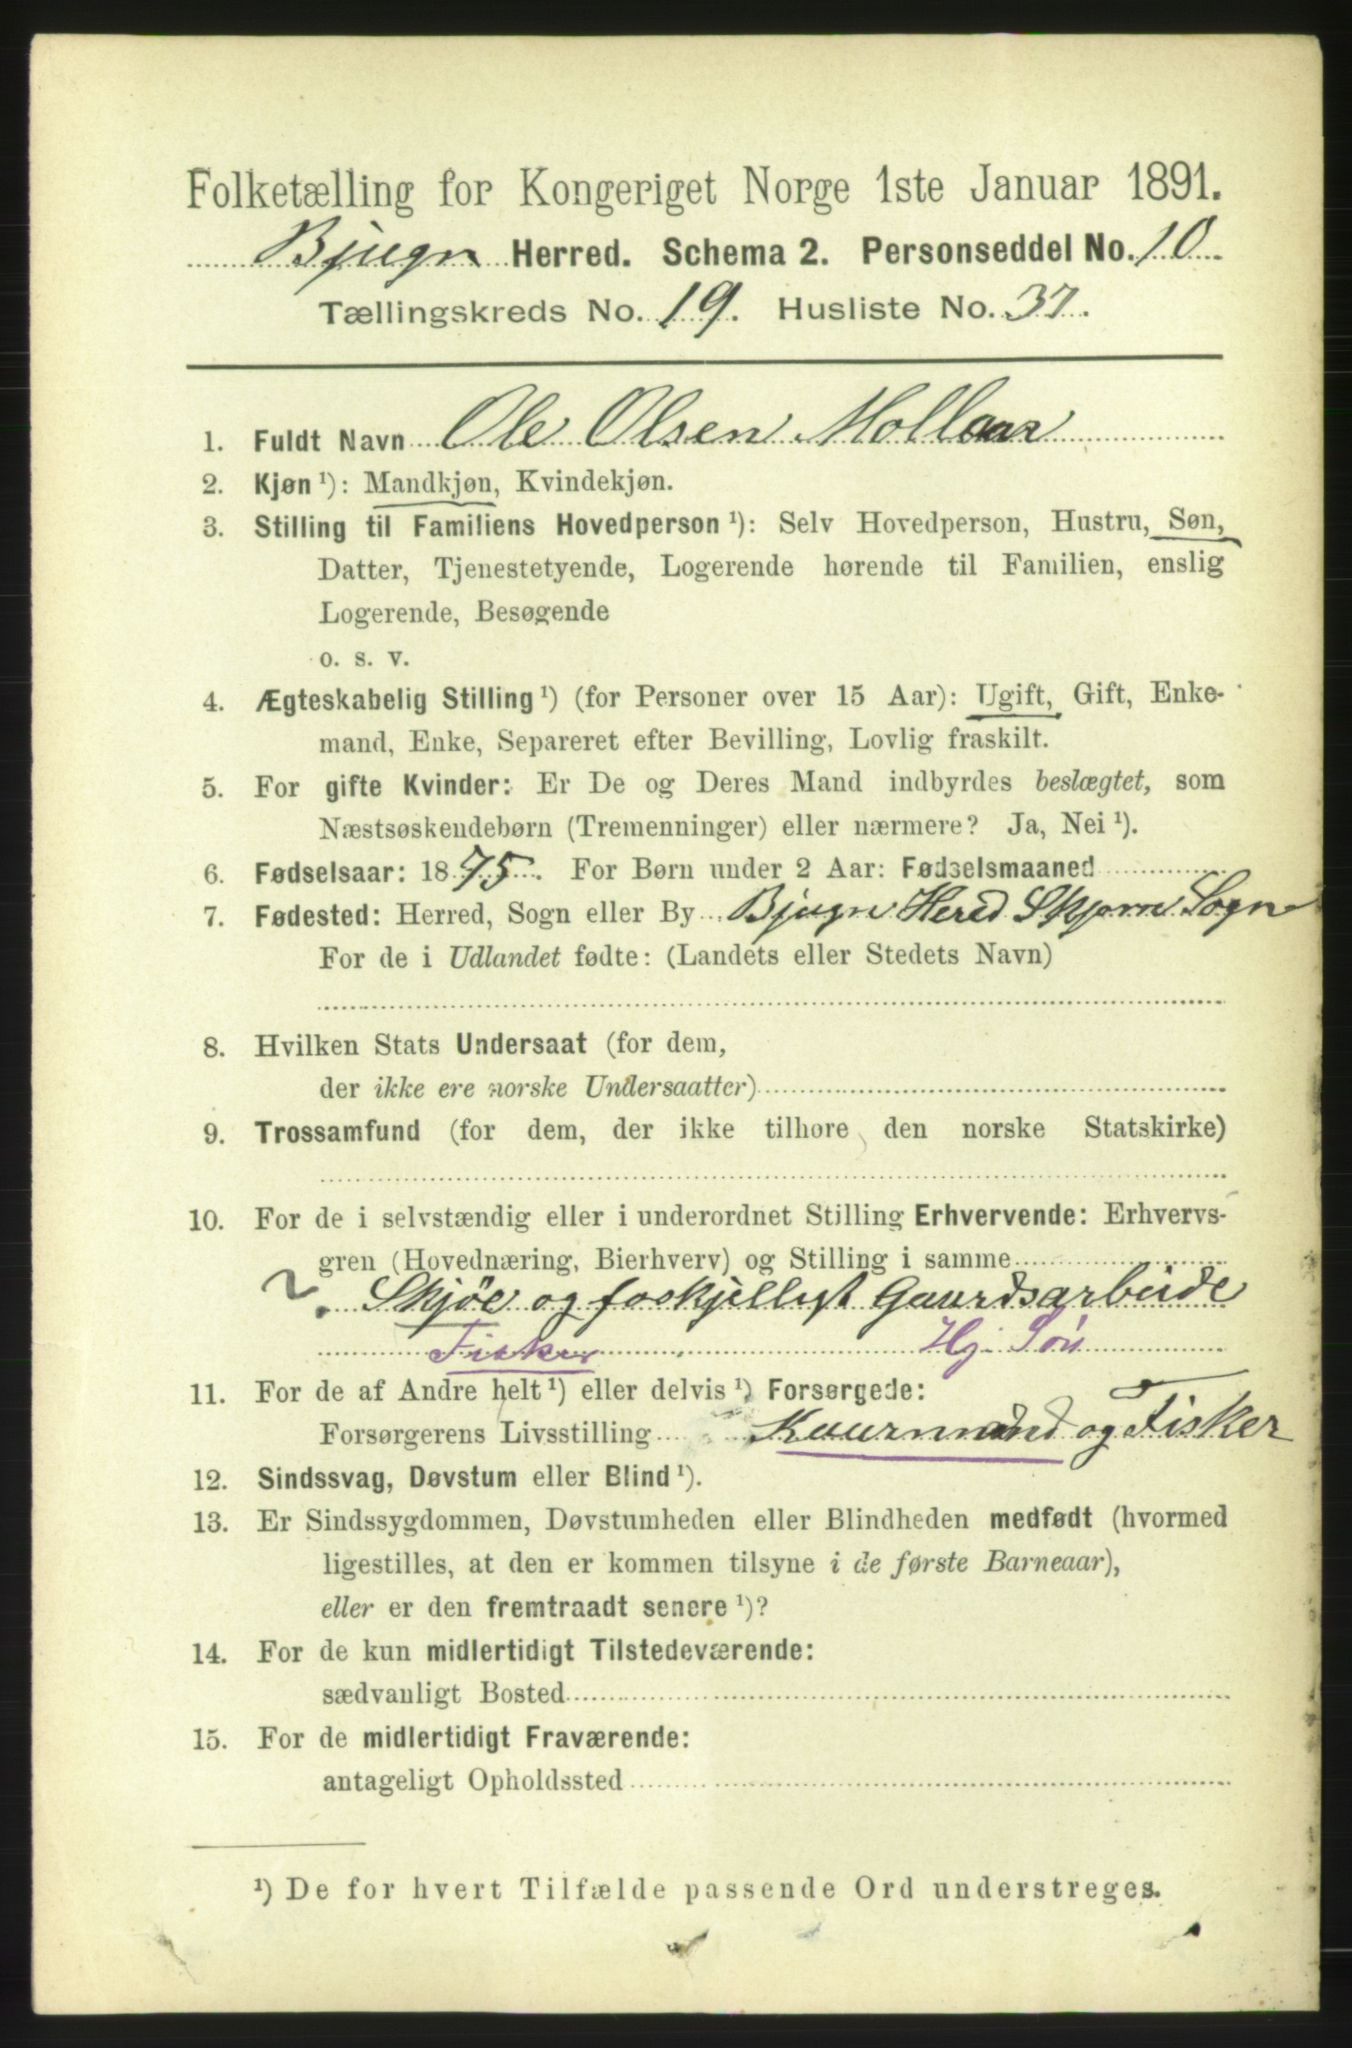 Folketælling for Kongeriget Norge 1ste Januar 1891.
Bjugn Herred. Schema 2. Personseddel No. 10
Tællingskreds No. 19. Husliste No. 37.
1. Fuldt Navn Ole Olsen Mollaar
2. Kjøn ¹): Mandkjøn, Kvindekjøn.
3. Stilling til Familiens Hovedperson ¹): Selv Hovedperson, Hustru, Søn,
Datter, Tjenestetyende, Logerende hørende til Familien, enslig
Logerende, Besøgende
o. s. v.
4. Ægteskabelig Stilling ¹) (for Personer over 15 Aar): Ugift, Gift, Enke-
mand, Enke, Separeret efter Bevilling, Lovlig fraskilt.
5. For gifte Kvinder: Er De og Deres Mand indbyrdes beslægtet, som
Næstsøskendebørn (Tremenninger) eller nærmere? Ja, Nei ¹).
6. Fødselsaar: 1875. For Børn under 2 Aar: Fødselsmaaned
7. Fødested: Herred, Sogn eller By Bjugn Hered Skjørn Sogn
For de i Udlandet fødte: (Landets eller Stedets Navn)
8. Hvilken Stats Undersaat (for dem,
der ikke ere norske Undersaatter)
9. Trossamfund (for dem, der ikke tilhøre den norske Statskirke)
10. For de i selvstændig eller i underordnet Stilling Erhvervende: Erhvervs-
gren (Hovednæring, Bierhverv) og Stilling i samme
Skjøe og foskjelligt Gaardsarbeide
Fisker Hj. Søn
11. For de af Andre helt ¹) eller delvis ¹) Forsørgede:
Forsørgerens Livsstilling Kaarmand og Fisker
12. Sindssvag, Døvstum eller Blind ¹).
13. Er Sindssygdommen, Døvstumheden eller Blindheden medfødt (hvormed
ligestilles, at den er kommen tilsyne i de første Barneaar),
eller er den fremtraadt senere ¹)?
14. For de kun midlertidigt Tilstedeværende:
sædvanligt Bosted
15. For de midlertidigt Fraværende:
antageligt Opholdssted
¹) De for hvert Tilfælde passende Ord understreges.